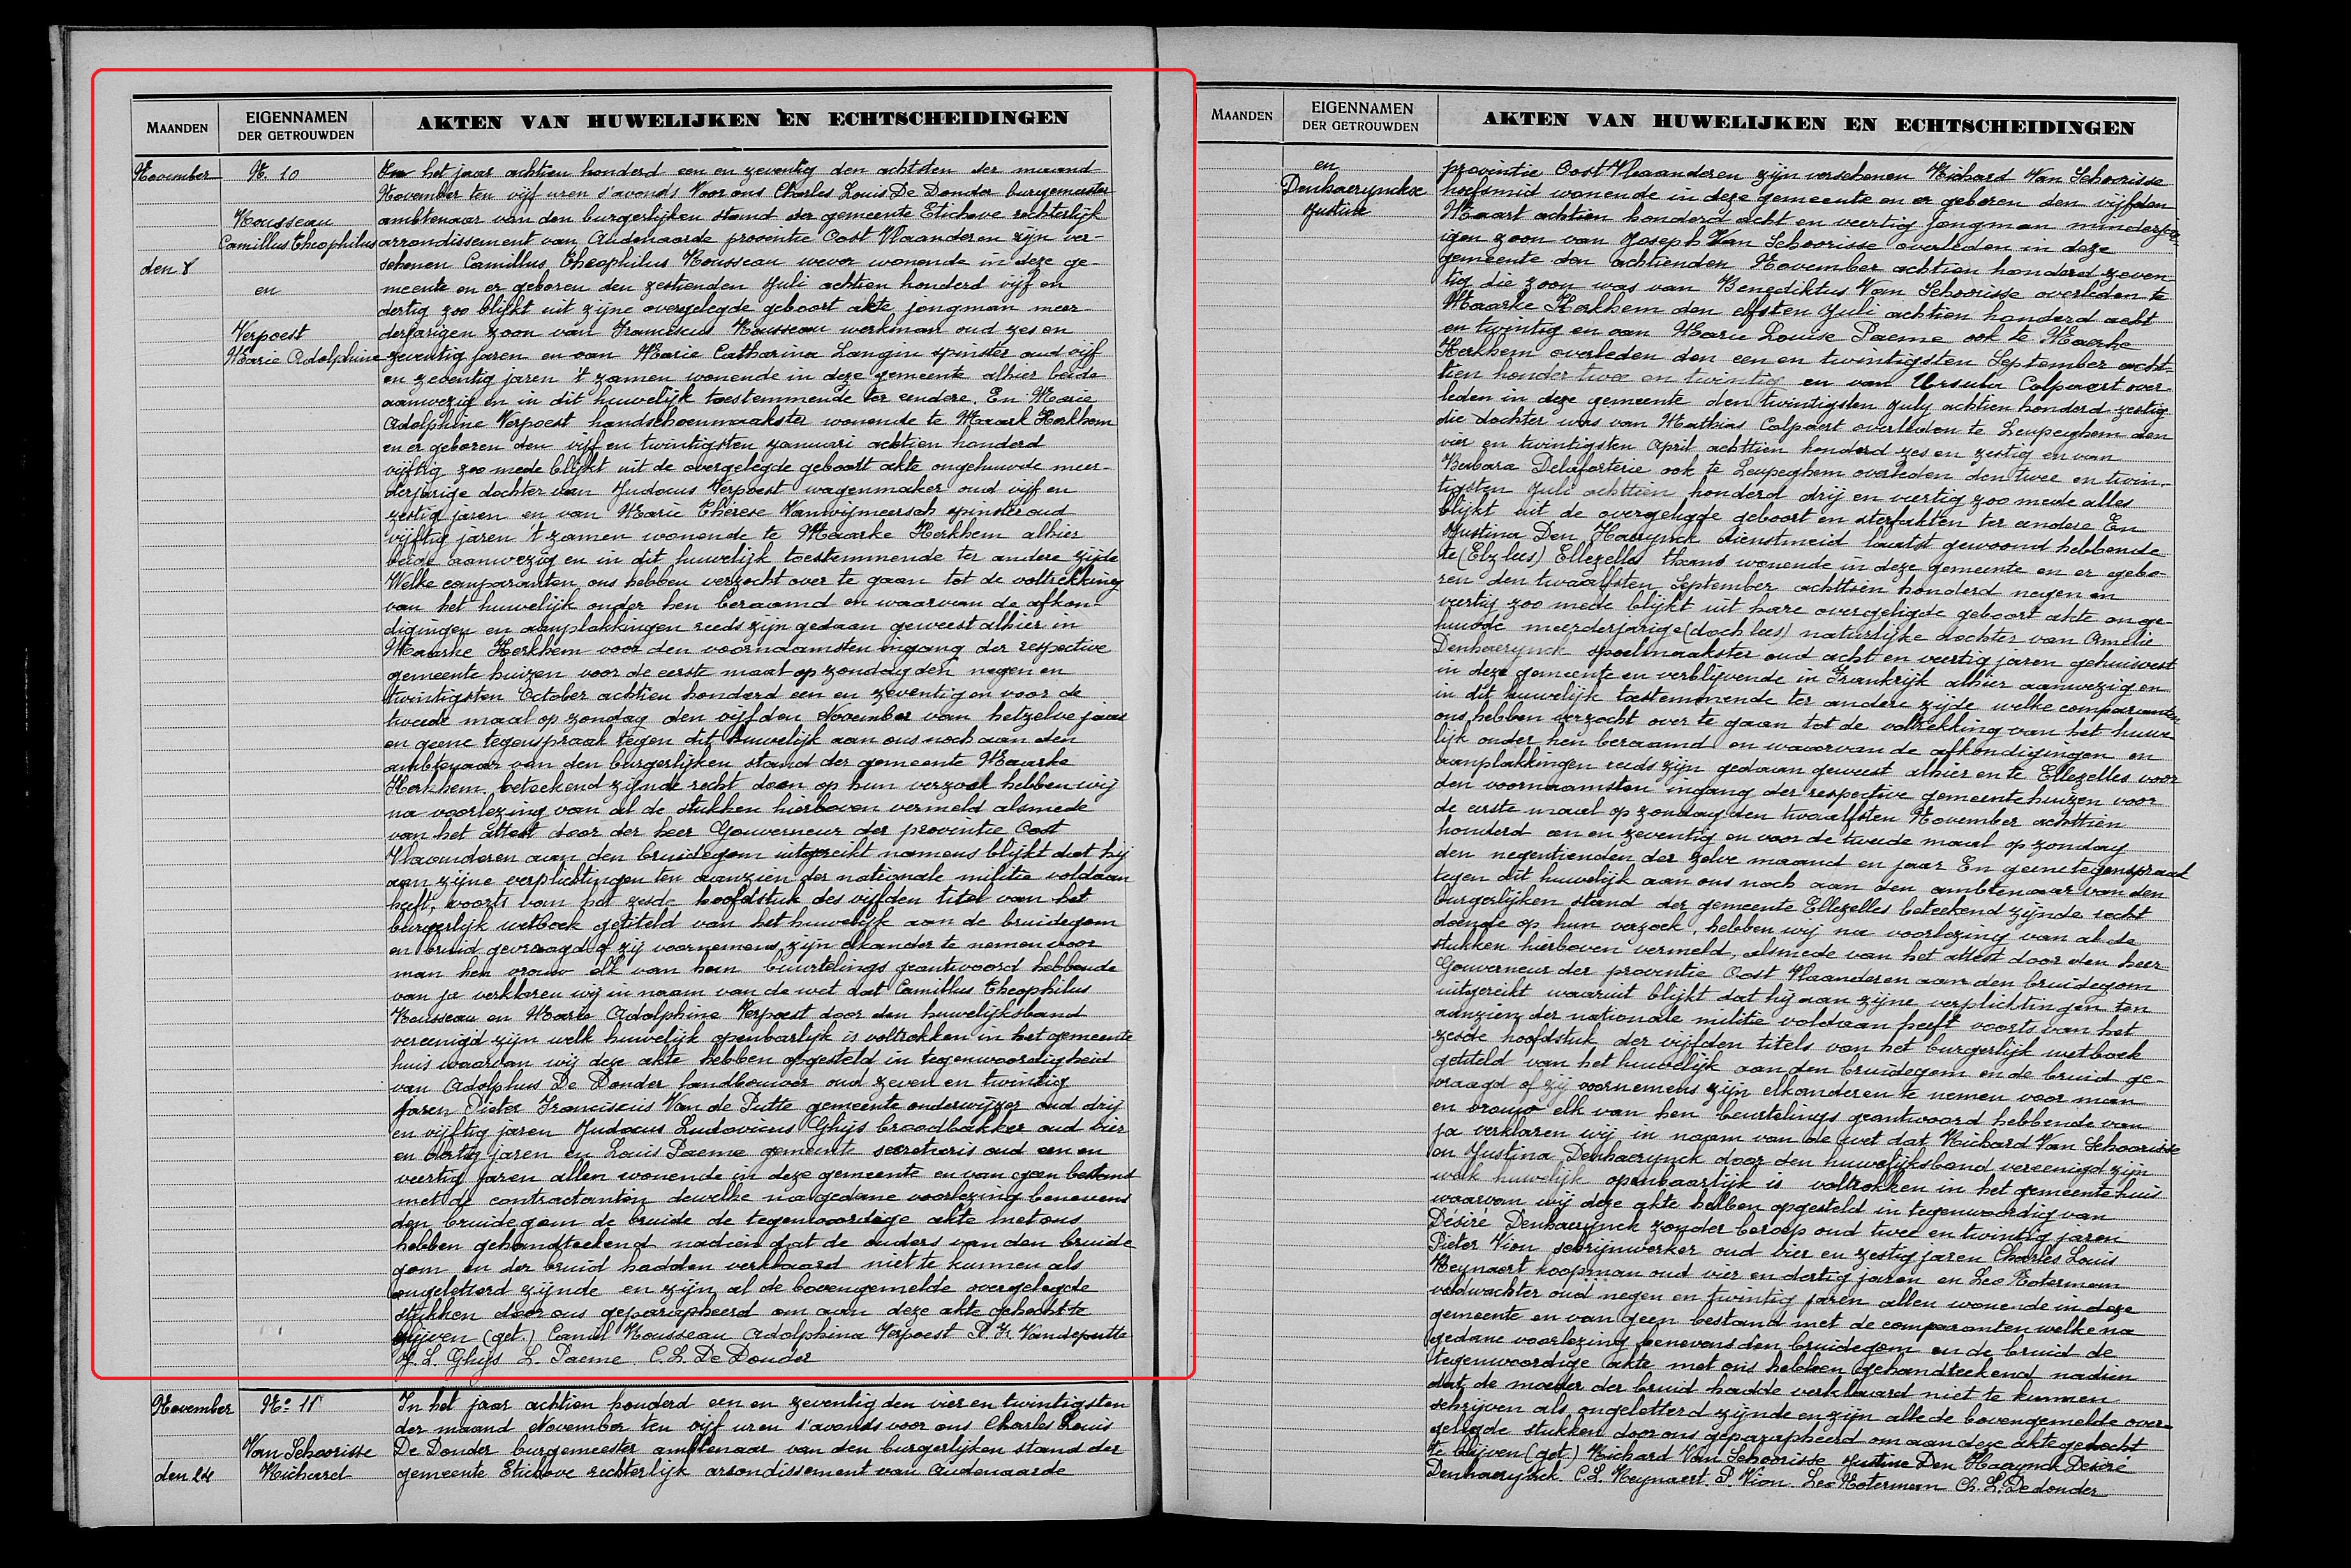 MAANDEN
EIGENNAMEN
DER GETROUWDEN
AKTEN VAN HUWELIJKEN EN ECHTSCHEIDINGEN
November
N. 10
Rousseau
Camillus Theophilus
den 8
en
Verpoest
Marie Adolphine
In het jaar achtien honderd een en zeventig den achtsten der maand
November ten vijf uren s'avonds Voor ons Charles Louis De Donder burgemeester
ambtenaar van den burgerlijken stand der gemeente Etichove rechterlijk
arrondissement van Audenaarde provintie Oost Vlaanderen zijn ver-
schenen Camillus Theophilus Rousseau wever wonende in deze ge-
meente en er geboren den zestienden Juli achtien honderd vijf en
dertig zoo blijkt uit zijne overgelegde geboort akte jongman meer-
derjarigen zoon van Franciscus Rousseau werkman oud zes en
zeventig jaren en van Marie Catharina Langin spinster oud vijf
en zeventig jaren 't zamen wonende in deze gemeente alhier beide
aanwezig en in dit huwelijk toestemmende ter eendere. En Marie
Adolphine Verpoest handschoenmaakster wonende te Maark Kerkhem
en er geboren den vijf en twintigsten januari achtien honderd
vijftig zoo mede blijkt uit de overgelegde geboort akte ongehuwde meer-
derjarige dochter van Judocus Verpoest wagenmaker oud vijf en
zestig jaren en van Marie Therese Vanwijmeersch spinster oud
vijftig jaren 't zamen wonende te Maarke Kerkhem alhier
beide aanwezig en in dit huwelijk toestemmende ter andere zijde
Welke comparanten ons hebben verzocht over te gaan tot de voltrekking
van het huwelijk onder hen beraamd en waarvan de afkon-
digingen en aanplakkingen reeds zijn gedaan geweest alhier in
Maarke Kerkhem voor den voornaamsten ingang der respective
gemeente huizen voor de eerste maal op zondag den negen en
twintigsten October achtien honderd een en zeventig en voor de
tweede maal op zondag den vijfden November van hetzelve jaar
en geene tegenspraak tegen dit huwelijk aan ons noch aan den
ambtenaar van den burgerlijken stand der gemeente Maarke
Kerkhem beteekend zijnde recht doen op hun verzoek hebben wij
na voorlezing van al de stukken hierboven vermeld alsmede
van het attest door der heer Gouverneur der provintie Oost
Vlaanderen aan den bruidegom uitgereikt namens blijkt dat hij
aan zijne verplichtingen ten aanzien der nationale militie voldaan
heeft, voorts van het zesde hoofdstuk des vijfden titel van het
burgerlijk wetboek getiteld van het huwelijk aan de bruidegom
en bruid gevraagd of zij voornemens zijn elkander te nemen voor
man hen vrouw elk van hem beurtelings geantwoord hebbende
van ja verklaren wij in naam van de wet dat Camillus Theophilus
Rousseau en Marie Adolphine Verpoest door den huwelijksband
vereenigd zijn welk huwelijk openbarlijk is voltrokken in het gemeente
huis waarvan wij deze akte hebben opgesteld in tegenwoordigheid
van Adolphus De Donder landbouwer oud zeven en twintig
jaren Pieter Franciscus Van de Putte gemeente onderwijzer oud drij
en vijftig jaren Judocus Ludovicus Ghijs broodbakker oud vier
en dertig jaren en Louis Paeme gemeente secretaris oud een en
veertig jaren allen wonende in deze gemeente en van geen bestand
met de contractanten dewelke na gedane voorlezing benevens
den bruidegom de bruide de tegenwoordige akte met ons
hebben gehandteekend nadien dat de ouders van den bruide
gom en der bruid hadden verklaard niet te kunnen als
ongeletterd zijnde en zijn al de bovengemelde overgelegde
stukken door ons geparapheerd om aan deze akte gehecht te
blijven (get.) Camil Rousseau Adolphina Verpoest P. F. Vandeputte
J. L. Ghijs L. Paeme. C. L. De Donder
November
N° 11
Van Schoorisse
Richard
den 24
In het jaar achtien honderd een en zeventig den vier en twintigsten
der maand November ten vijf uren s'avonds voor ons Charles Louis
De Donder burgemeester ambtenaar van den burgerlijken stand der
gemeente Etichove rechterlijk arrondissement van Audenaarde
MAANDEN
EIGENNAMEN
DER GETROUWDEN
AKTEN VAN HUWELIJKEN EN ECHTSCHEIDINGEN
en
Denhaerynckx
Justine
provintie Oost Vlaanderen zijn verschenen Richard Van Schoorisse
hoefsmid wonende in deze gemeente en er geboren den vijfden
Maart achtien honderd acht en veertig jongman minderjar
igen zoon van Joseph Van Schoorisse overleden in deze
gemeente den achtienden November achtien honderd zeven
tig die zoon was van Benediktus Van Schoorisse overleden te
Maarke Kerkhem den elfsten Juli achtien honderd acht
en twintig en van Marie Louise Paeme ook te Maerke
Kerkhem overleden den een en twintigsten September acht-
tien honder twee en twintig en van Ursula Colpaert over-
leden in deze gemeente den twintigsten July achtien honderd zestig
die dochter was van Mathias Colpaert overleden te Leupeghem den
vier en twintigsten April achttien honderd zes en zestig en van
Barbara Delaforterie ook te Leupeghem overleden den twee en twin-
tigsten Juli achttien honderd drij en veertig zoo mede alles
blijkt uit de overgelegde geboort en sterfakten ter andere En
Justina Den Haerynck dienstmeid laatst gewoond hebbende
te (Elz lees) Ellezelles thans wonende in deze gemeente en er gebo-
ren den twaalfsten September achttien honderd negen en
veertig zoo mede blijkt uit hare overgelegde geboort akte onge-
huwde meerderjarige (doch lees) naturlijke dochter van Amelie
Denhaerynck spoelmaakster oud acht en veertig jaren gehuisvest
in deze gemeente en verblijvende in Frankrijk alhier aanwezig en
in dit huwelijk toestemmende ter andere zijde welke comparanten
ons hebben verzocht over te gaan tot de voltrekking van het huwe
lijk onder hen beraamd en waarvan de afkondigingen en
aanplakkingen reeds zijn gedaan geweest alhier en te Ellezelles voor
den voornaamsten ingang der respective gemeente huizen voor
de eerste maal op zondag den twaalfsten November achttien
honderd een en zeventig en voor de tweede maal op zondag
den negentienden der zelve maand en jaar En geene tegenspraak
tegen dit huwelijk aan ons noch aan den ambtenaar van den
burgerlijken stand der gemeente Ellezelles beteekend zijnde recht
doende op hun verzoek, hebben wij na voorlezing van al de
stukken hierboven vermeld, alsmede van het attest door den heer
Gouverneur der provintie Oost Vlaanderen aan den bruidegom
uitgereikt waaruit blijkt dat hij aan zijne verplichtingen ten
aanzien der nationale militie voldaan heeft voorts van het
zesde hoofdstuk der vijfden titels van het burgerlijk wetboek
getiteld van het huwelijk aan den bruidegom en de bruid ge-
vraagd of zij voornemens zijn elkanderen te nemen voor man
en vrouw elk van hen beurtelings geantwoord hebbende van
ja verklaren wij in naam van de wet dat Richard Van Schoorisse
en Justina Denhaerynck door den huwelijksband vereenigd zijn
welk huwelijk openbaarlijk is voltrokken in het gemeente huis
waarvan wij deze akte hebben opgesteld in tegenwoordig van
Désiré Denhaerynck zonder beroep oud twee en twintig jaren
Pieter Vion schrijnwerker oud vier en zestig jaren Charles Louis
Reynaert koopman oud vier en dertig jaren en Leo Noterman
veldwachter oud negen en twintig jaren allen wonende in deze
gemeente en van geen bestand met de comparanten welke na
gedane voorlezing benevens den bruidegom en de bruid de
tegenwoordige akte met ons hebben gehandteekend nadien
dat de moeder der bruid hadde verklaard niet te kunnen
schrijven als ongeletterd zijnde en zijn alle de bovengemelde over-
gelegde stukken door ons geparapheerd om aan deze akte gehecht
te blijven (get.) Richard Van Schoorisse Justine Den Haerynck Desiré
Denhaerynck C. L. Reynaert. P. Vion. Leo Noterman Ch. L. De donder